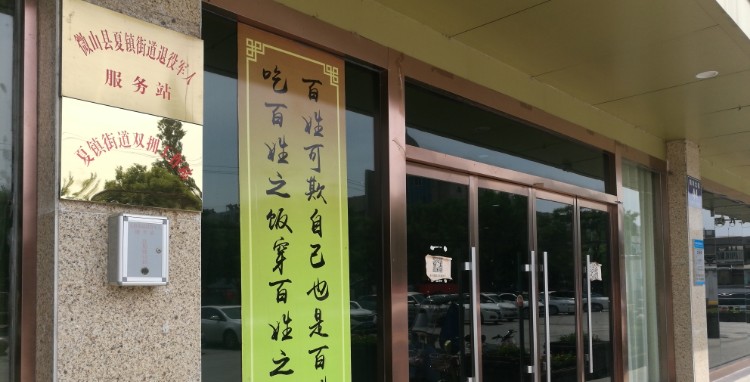 微山县夏镇街道退役军人
服务站
夏镇街道双拥
吃百姓之饭穿百姓之
百姓可欺自己也是百姓